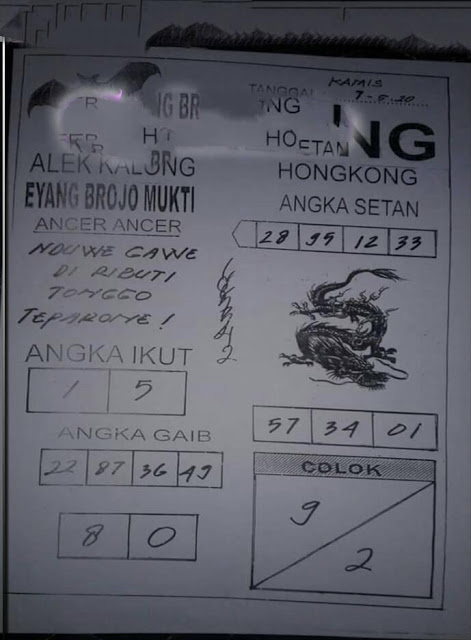 KAMIS
TANGGAL 7-5-20
NG BR
NG
HO
HOETAN NG
ALEK KALONG
BR
HONGKONG
EYANG BROJO MUKTI
ANGKA SETAN
ANCER ANCER
28 95 12 33
NDUWE GAWE
DI RIBUTI
TONGGO
TEPARONE !
ANGKA IKUT
1 5
57 34 01
ANGKA GAIB
22 87 36 49
COLOK
9
2
8 0